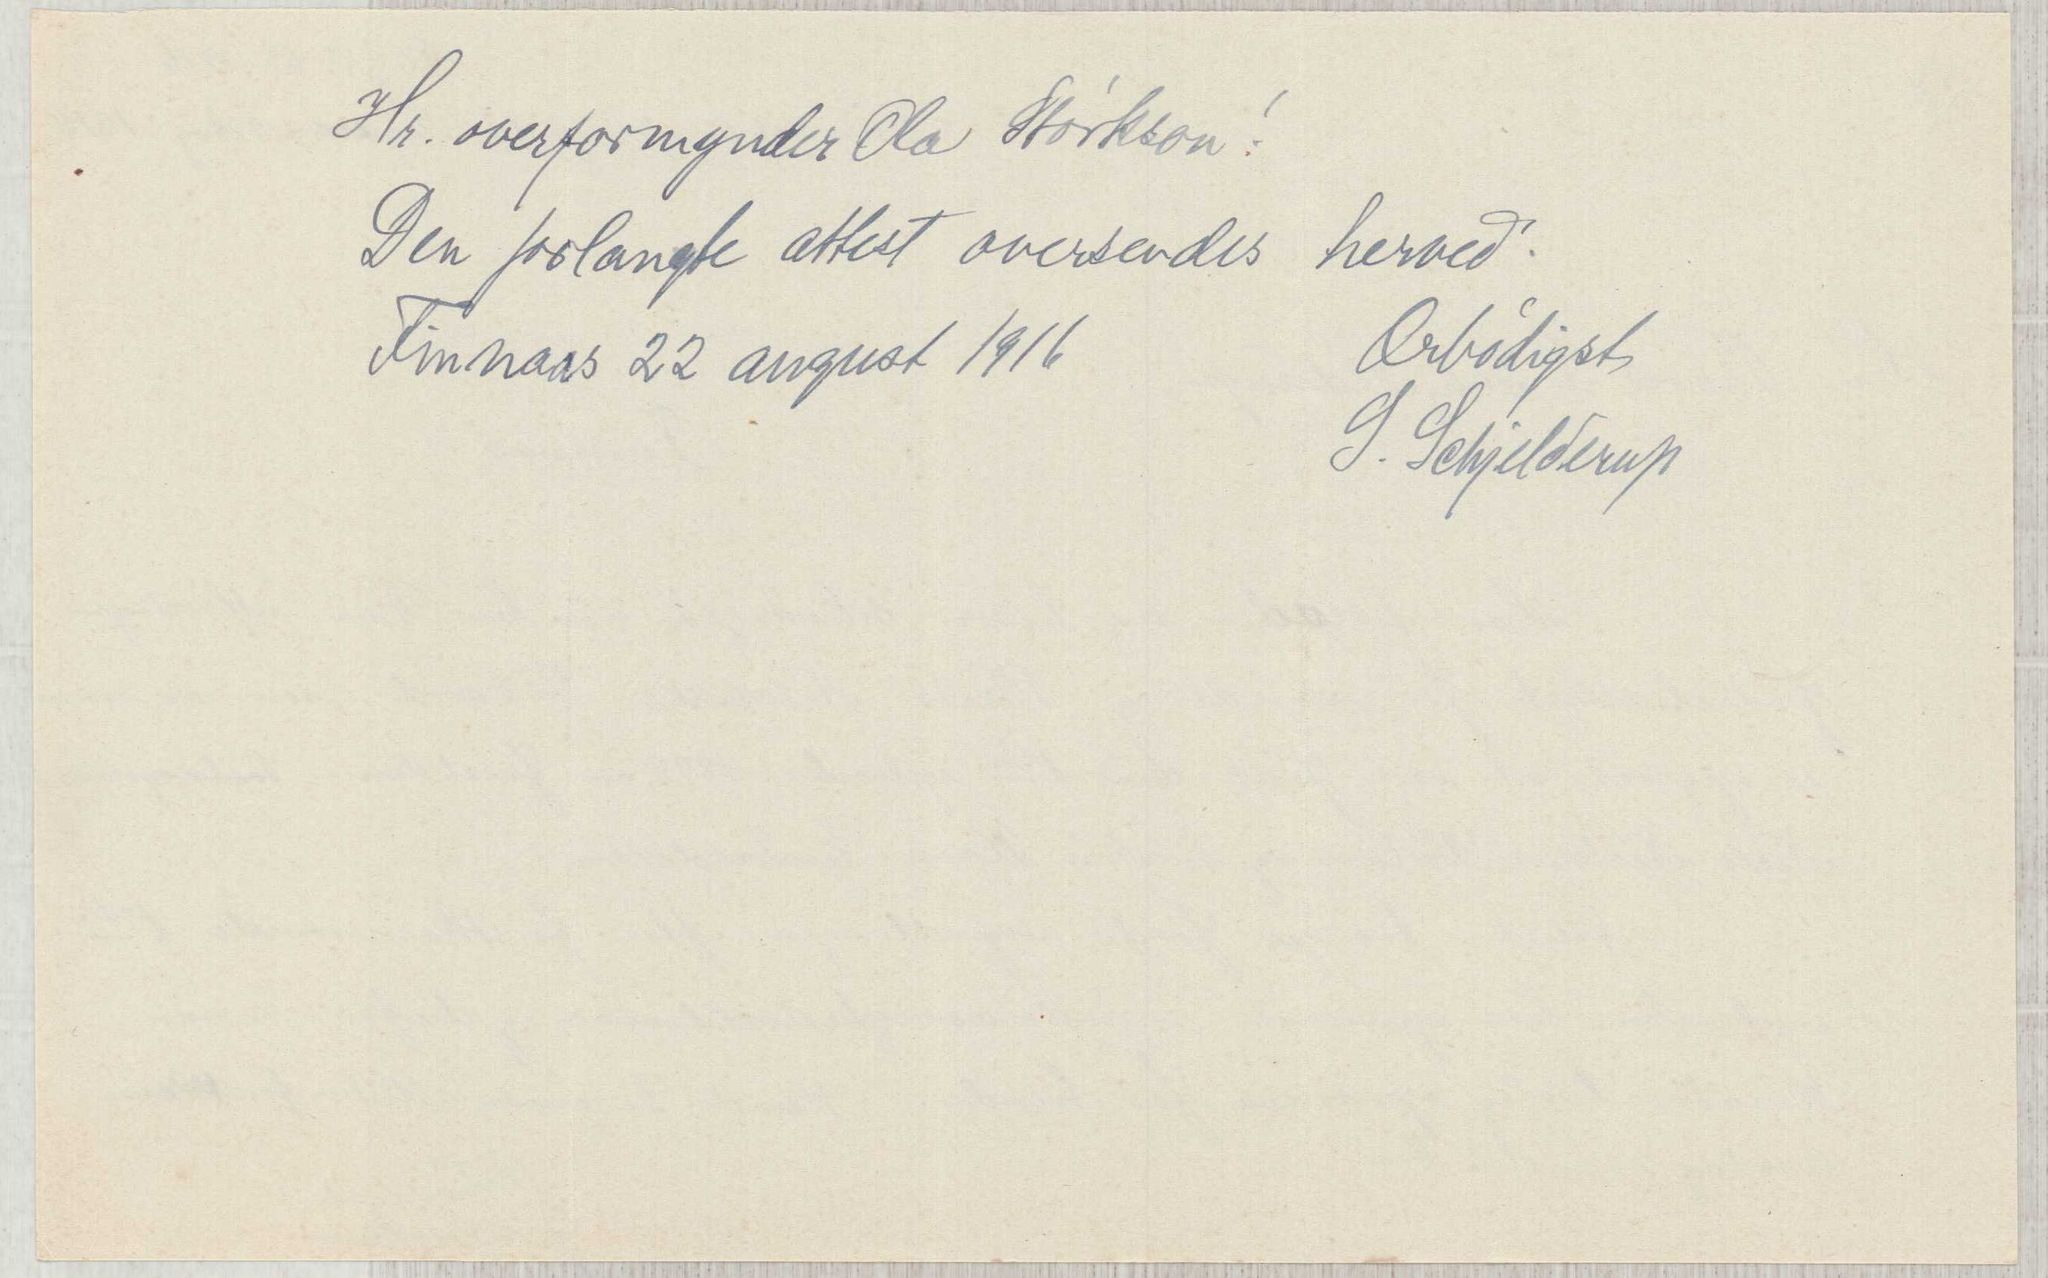 Hr. overformynder Ola Størkson!
Den forlangte attest oversendes herved.
Finnaas 22 august 1916
Ærbødigst
G. Schjelderup